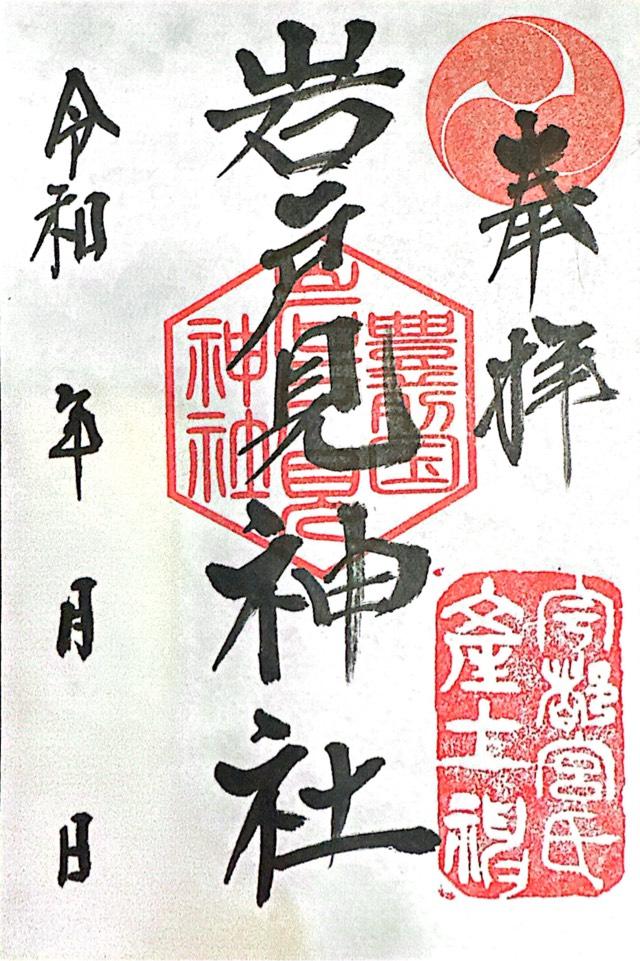 奉拝
宇都宮氏
産土神
岩戸見神社
豊前国
岩戸見
神社
令和　年　月　日